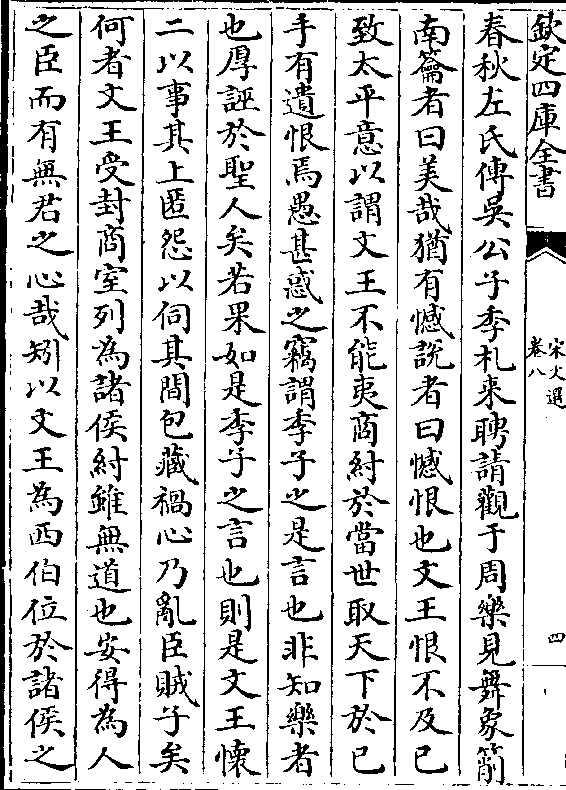 欽定四庫全書
宋文選
卷八
四
春秋左氏傳吳公子季札來聘請觀于周樂見舞象箾
南籥者曰美哉猶有憾說者曰憾恨也文王恨不及己
致太平意以謂文王不能夷商紂於當世取天下於己
手有遺恨焉愚甚惑之竊謂季子之是言也非知樂者
也厚誣於聖人矣若果如是季子之言也則是文王懷
二以事其上匿怨以伺其間包藏禍心乃亂臣賊子矣
何者文王受封商室列為諸侯紂雖無道也安得為人
之臣而有無君之心哉矧以文王為西伯位於諸侯之